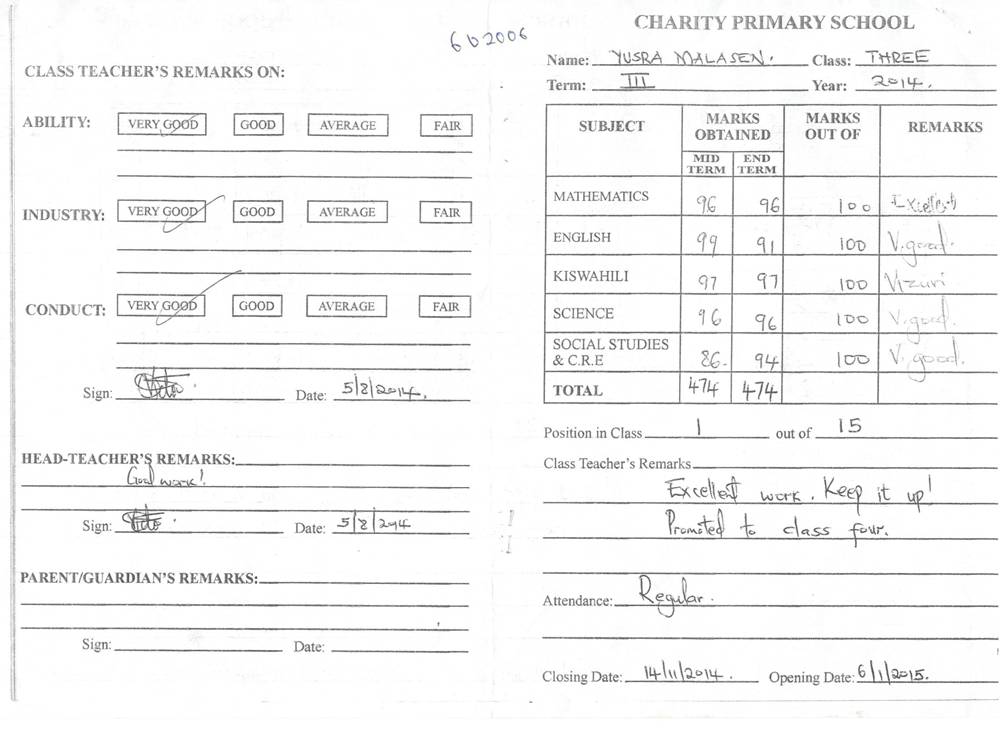 602006
CLASS TEACHER'S REMARKS ON:
ABILITY: VERY GOOD GOOD AVERAGE FAIR
INDUSTRY: VERY GOOD GOOD AVERAGE FAIR
CONDUCT: VERY GOOD GOOD AVERAGE FAIR
Sign: Date: 5/8/2014.
HEAD-TEACHER'S REMARKS:
Good work!
Sign: Date: 5/8/2014
PARENT/GUARDIAN'S REMARKS:
Sign: Date:
CHARITY PRIMARY SCHOOL
Name: YUSRA MALASEN. Class: THREE
Term: III Year: 2014.
SUBJECT MARKS OBTAINED MARKS OUT OF REMARKS
MID TERM END TERM
MATHEMATICS 96 96 100 Excellent
ENGLISH 99 91 100 V.good.
KISWAHILI 97 97 100 Vizuri
SCIENCE 96 96 100 V.good.
SOCIAL STUDIES
& C.R.E 86. 94 100 V.good.
TOTAL 474 474
Position in Class 1 out of 15
Class Teacher's Remarks
Excellent work. Keep it up!
Promoted to class four.
Attendance: Regular.
Closing Date: 14/11/2014. Opening Date: 6/1/2015.